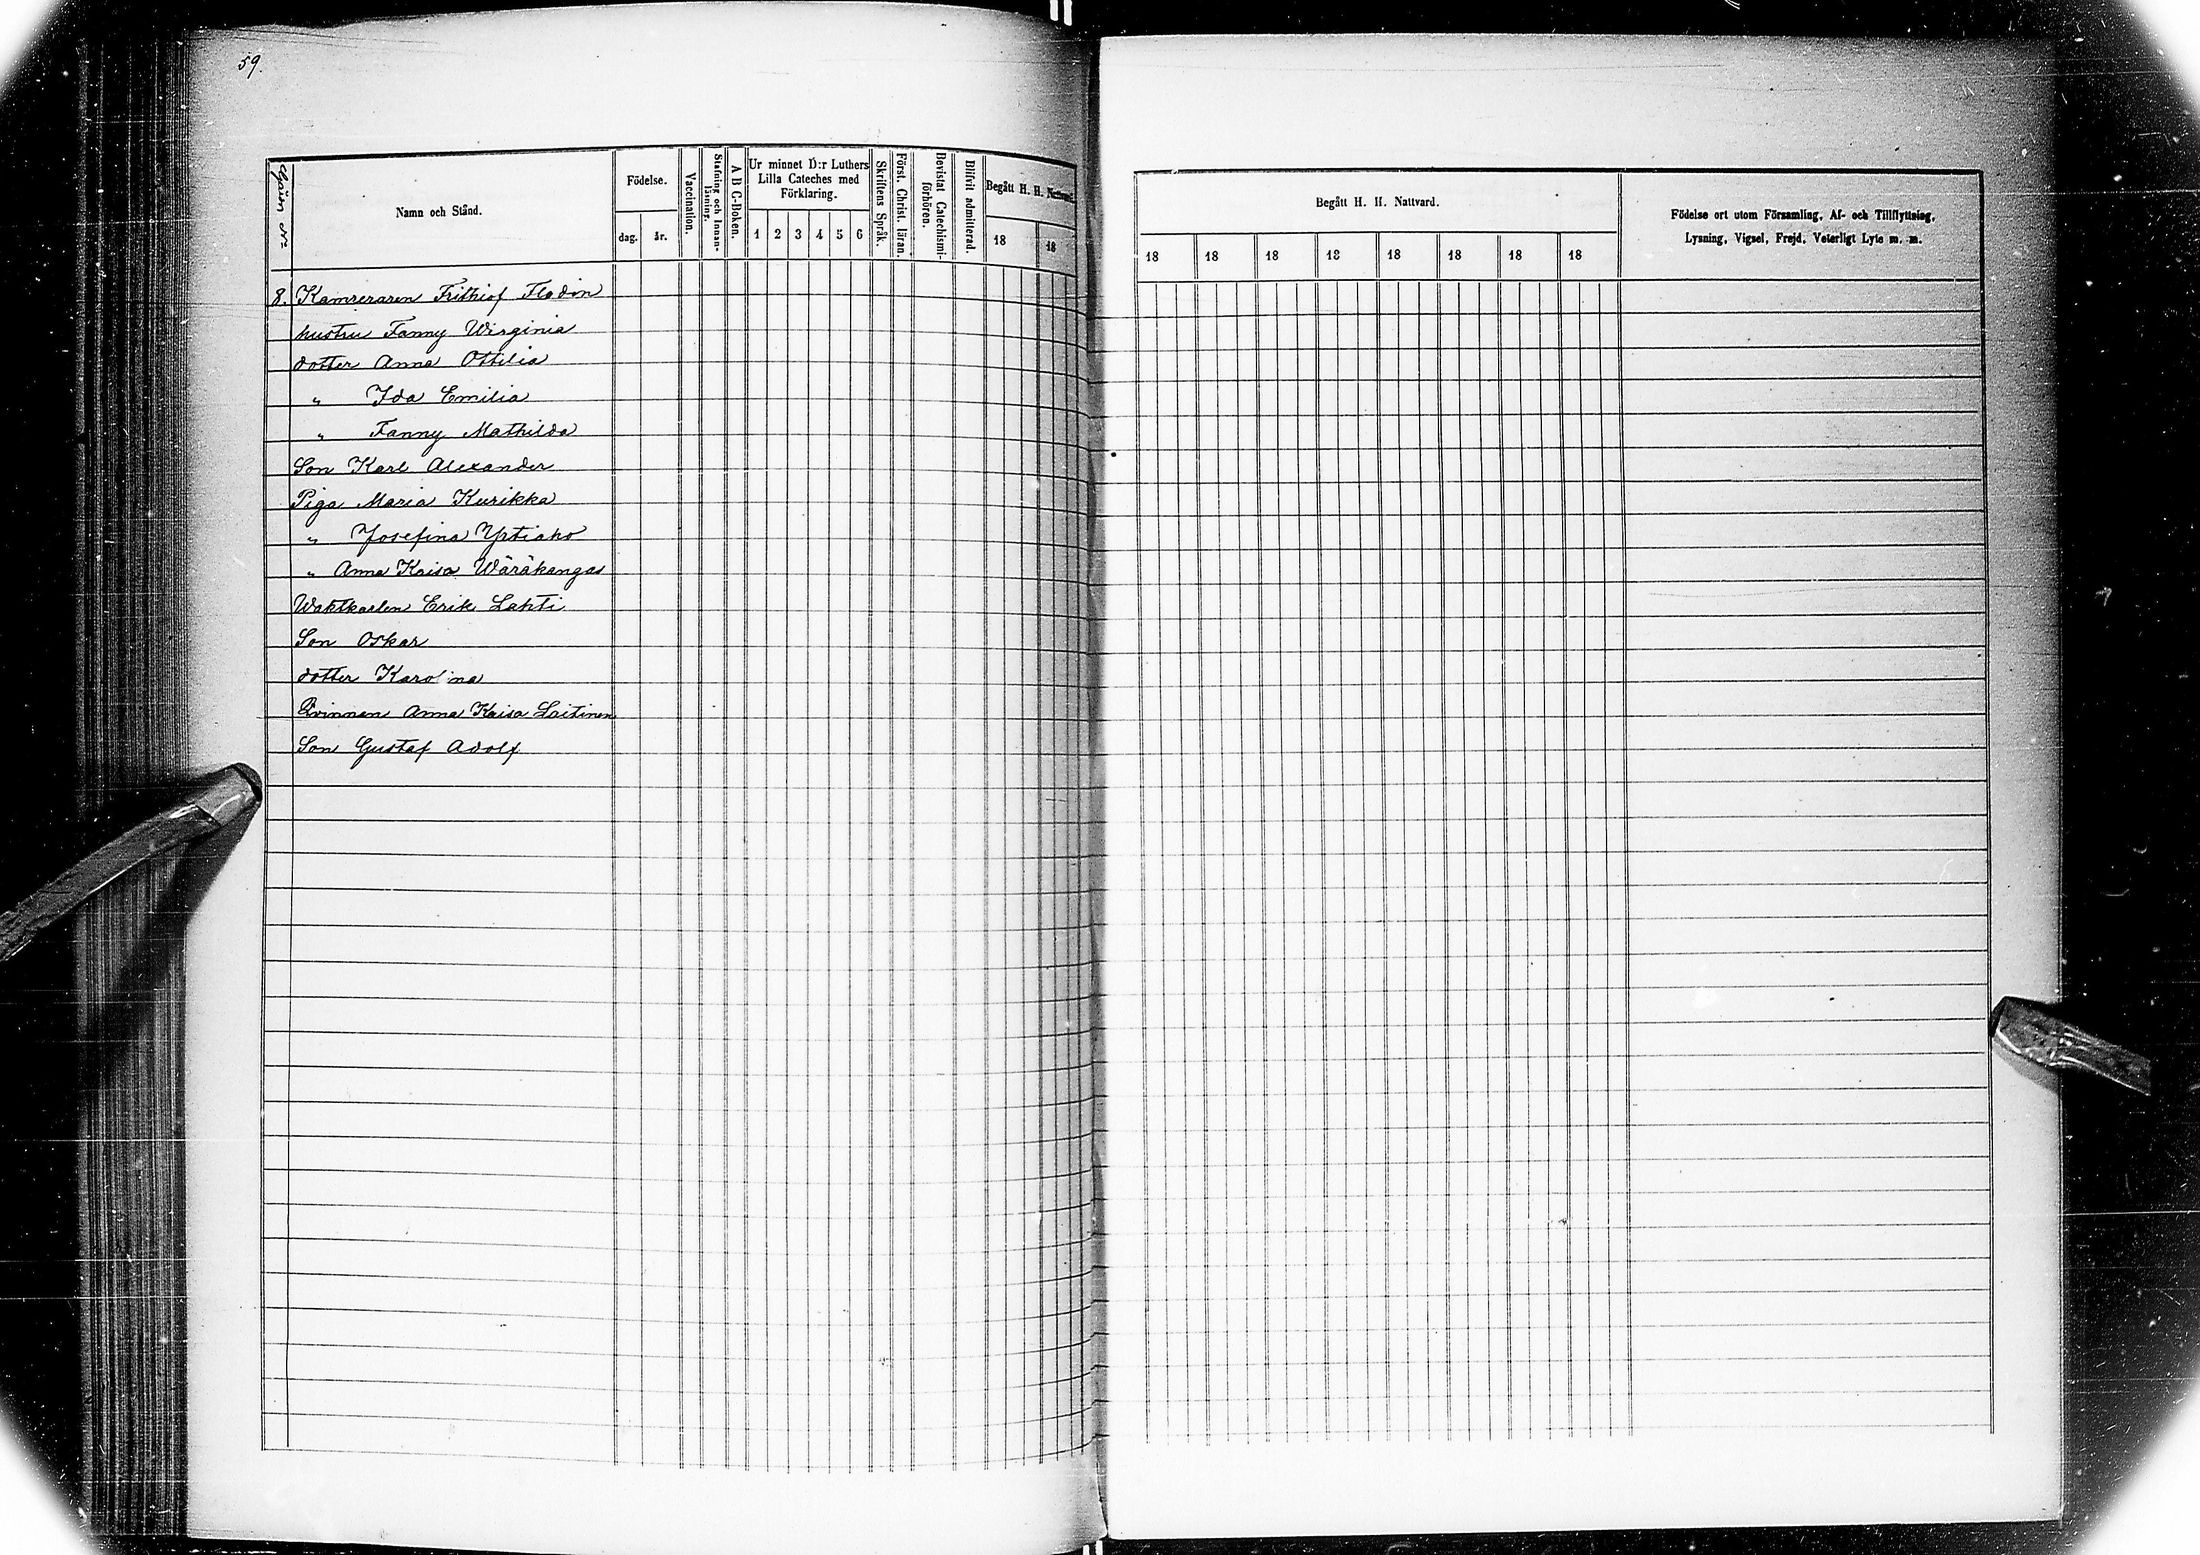 59.
Gård Nº
Namn och Stånd.
Födelse.
dag.
år.
Vaccination.
Stafning och Innan-
läsning.
A B C-Boken.
Ur minnet D:r Luthers
Lilla Cateches med
Förklaring.
1 2 3 4 5 6
Skriftens Språk.
Först. Christ. läran.
Bevistat Catechismi-
förhören.
Blifvit admitterad.
Begått H. H. Nattvard.
18 18
Begått H. H. Nattvard.
18 18 18 18 18 18 18 18
Födelse ort utom Församling, Af- och Tillflyttning,
Lysning, Vigsel, Frejd, Veterligt Lyte m. m.
8. Kamreraren Frithiof Flodin
hustru Fanny Wirginia
dotter Anna Ottilia
" Ida Emilia
" Fanny Mathilda
Son Karl Alexander
Piga Maria Kurikka
" Josefina Yrtiaho
" Anna Kaisa Wäräkangas
Waktkarlen Erik Lahti
Son Oskar
dotter Karolina
Qvinnan Anna Kaisa Laitinen
Son Gustaf Adolf